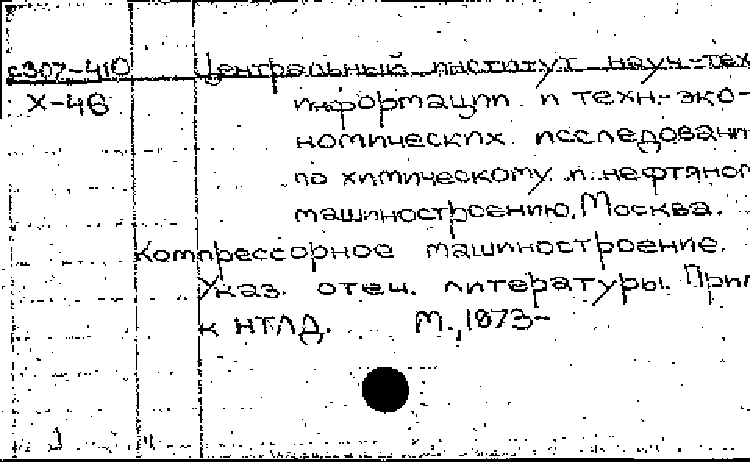 с307-410 Центральный институт науч.-тех
Х-46 информации и техн.-эко-
номических исследован
по химическому и нефтяном
машиностроению, Москва.
Компрессорное машиностроение.
Указ. отеч. литературы. При
к НТЛД. М., 1973-